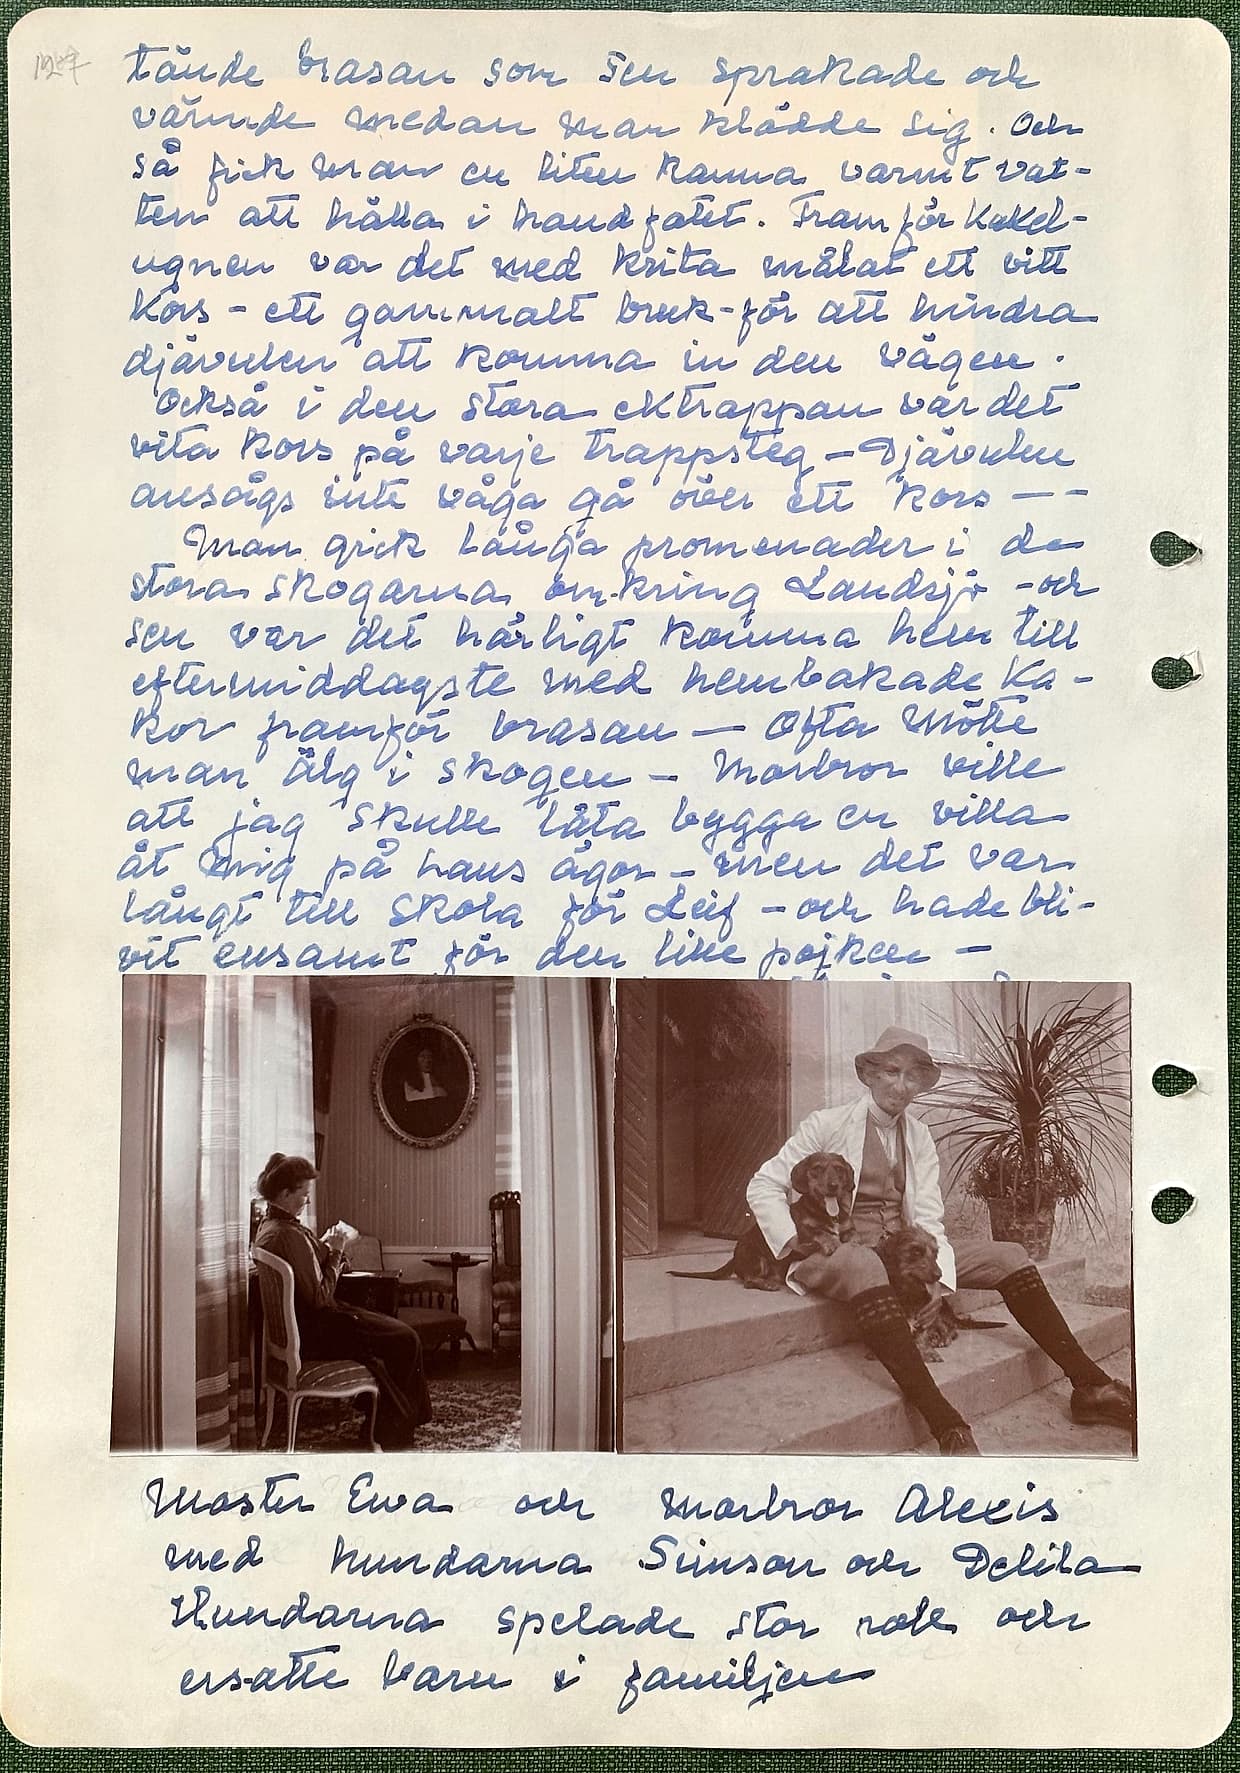 tände brasan som sen sprakade och
värmde medan man klädde sig. Och
så fick man en liten kanna varmt vat-
ten att hälla i handfatet. Framför kakel-
ugnen var det med krita målat ett vitt
kors – ett gammalt bruk – för att hindra
djävulen att komma in den vägen.
Också i den stora ektrappan var det
vita kors på varje trappsteg – Djävulen
ansågs inte våga gå över ett kors – –
Man gick långa promenader i de
stora skogarna omkring Landsjö – och
sen var det härligt komma hem till
eftermiddagste med hembakade ka-
kor framför brasan – Ofta mötte
man älg i skogen – Morbror ville
att jag skulle låta bygga en villa
åt mig på hans ägor – men det var
långt till skola för Leif – och hade bli-
vit ensamt för den lille pojken –
Moster Ewa och morbror Alexis
med hundarna Simson och Delila
Hundarna spelade stor roll och
ersatte barn i familjen